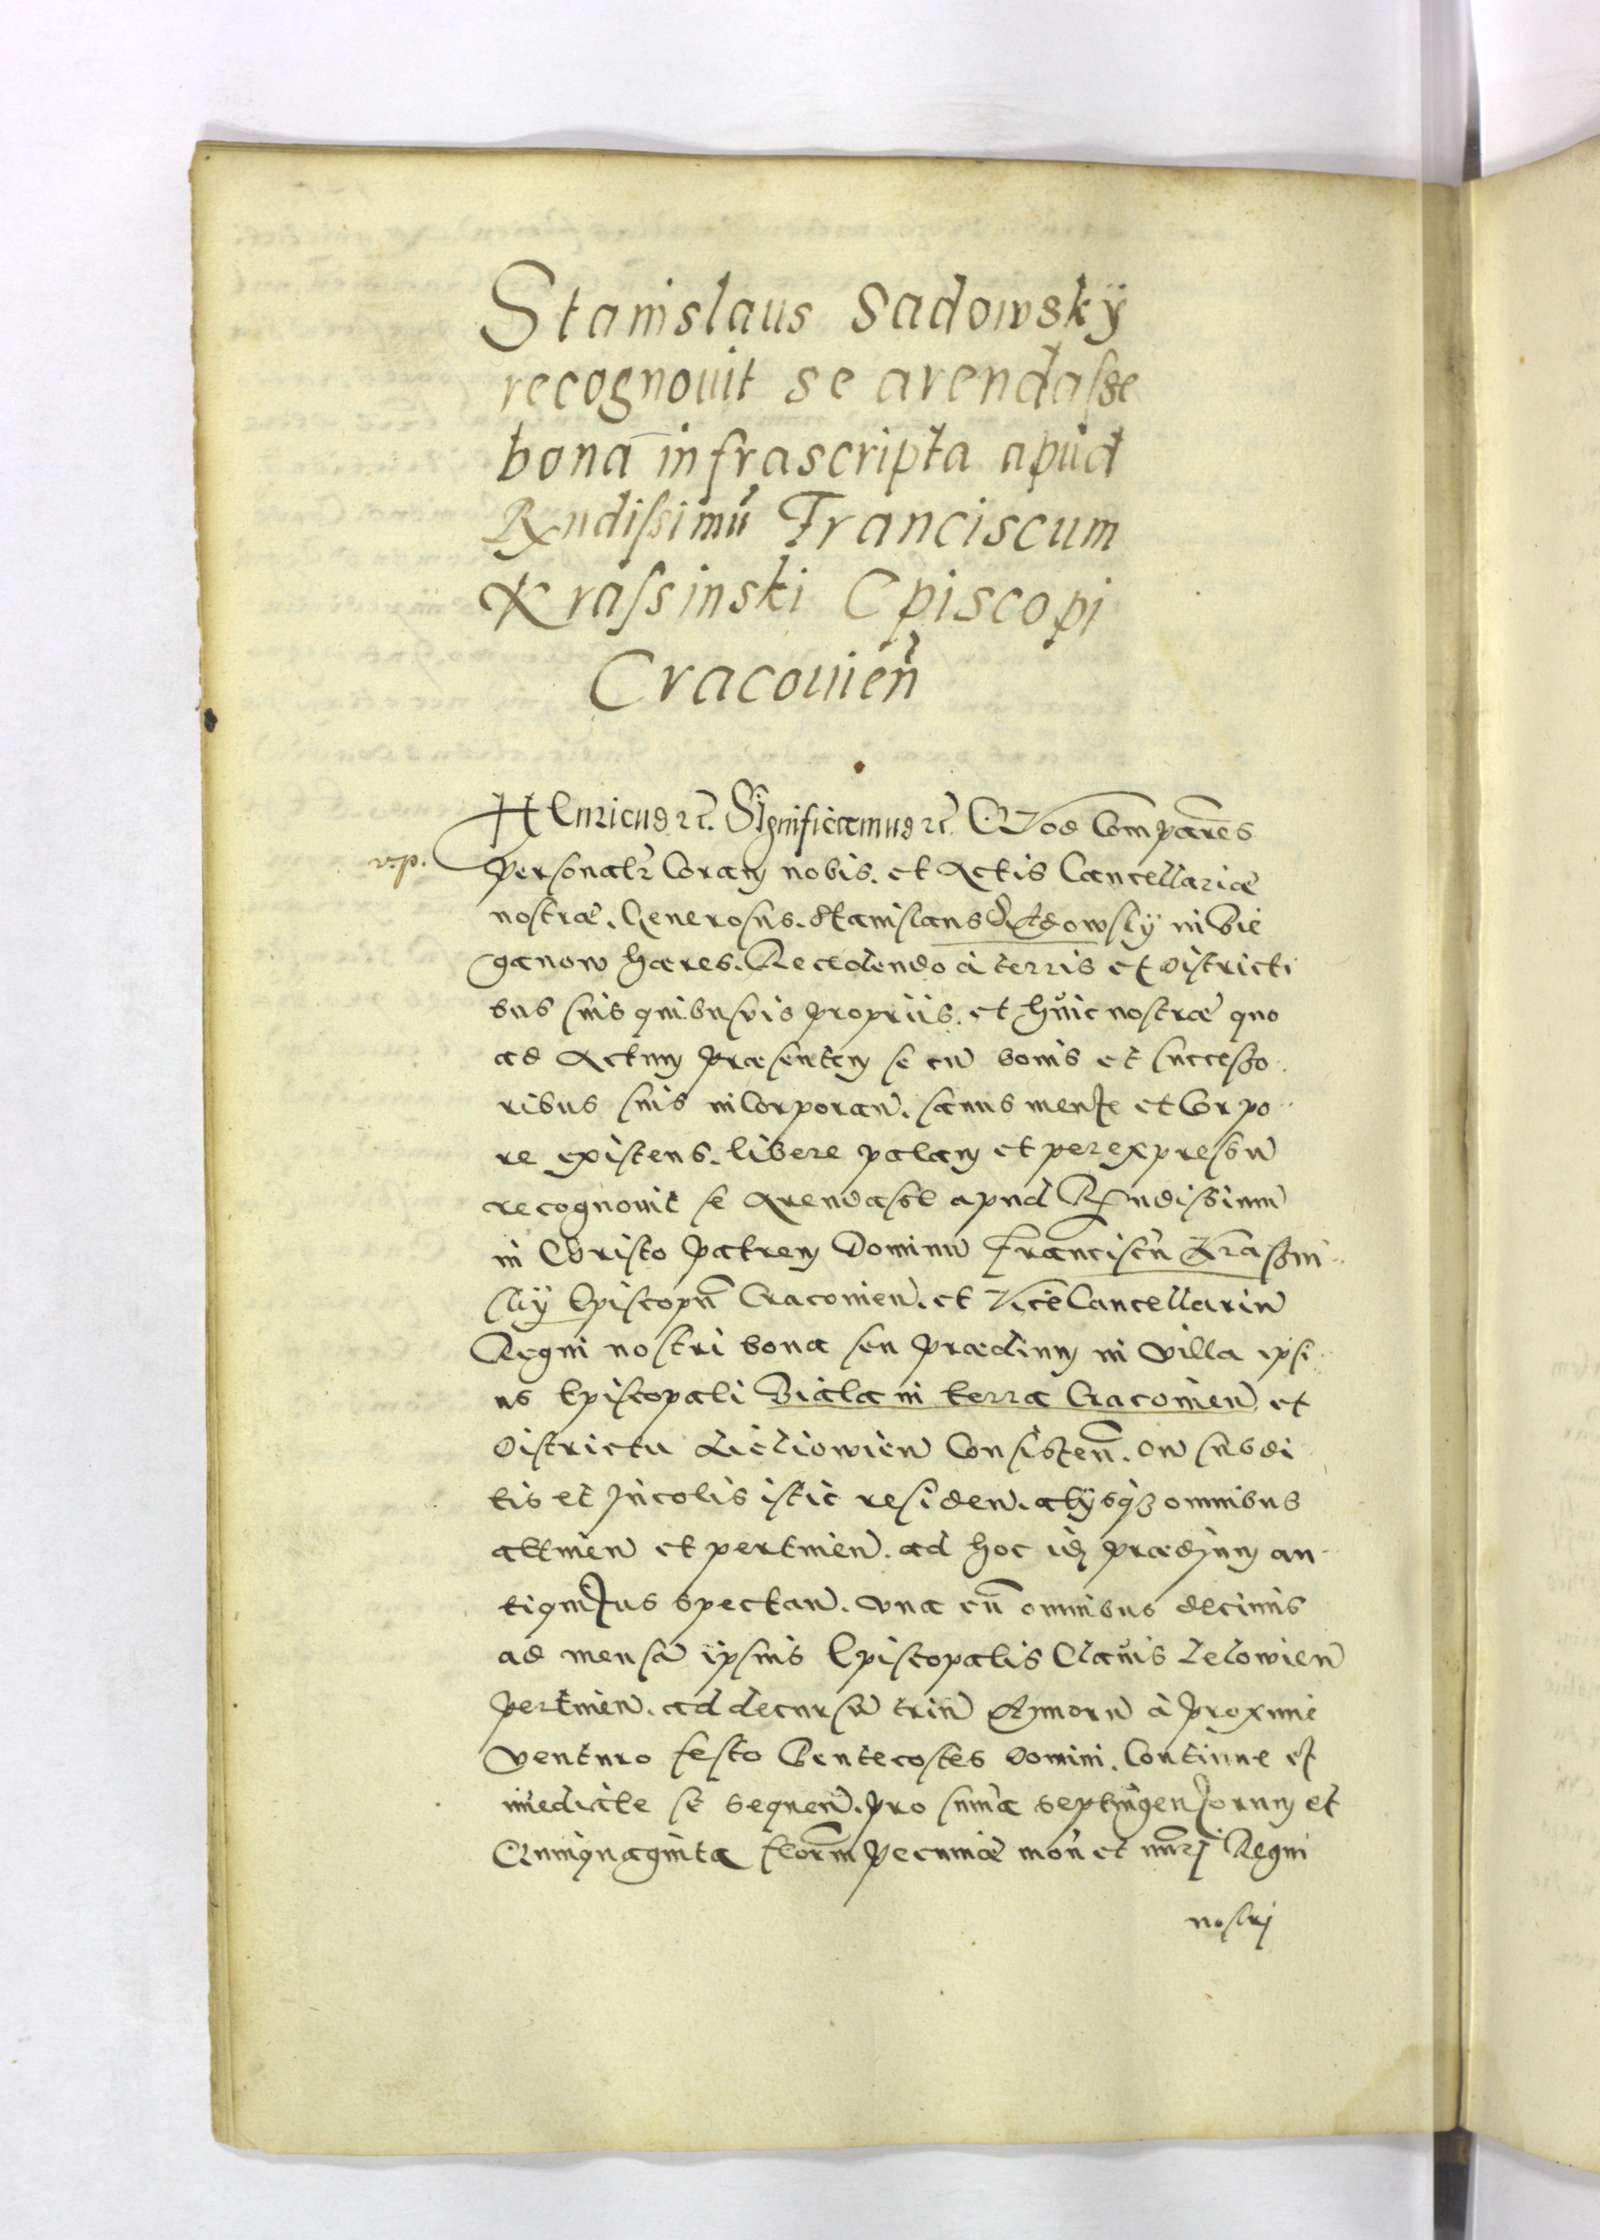 Stanislaus Sadowskÿ
recognouit se arendasse
bona infrascripta apud
Rxndissimū Franciscum
Krassinski Episcopi
Cracouien̄
Henricus etc. Significamus etc. Quod Comparens
v.p.
personalr̄ Coram nobis. et Actis Cancellariæ
nostræ. Generosus. Stanislaus Sadowskÿ in Bie
ganow hæres. Recedendo à terris et districti
bus suis quibusuis proprijs. et huic nostræ quo
ad Actum præsentem se cū bonis et successo
ribus suis incorporan̄. sanus mente et Corpo
re existens. libere palam et per expressū
recognouit se Arendasse apud Rxndissimū
in Christo Patrem Dominū Franciscū Krassin
skÿ Episcopū Cracouien̄. et ViceCancellariū
Regni nostri bona seu prædium in villa ipsi
us Episcopali Biala in terra Cracouien̄ et
Districtu Leliowien̄ Consisten̄. Cū subdi
tis et Incolis istic residen̄. alÿsq3 omnibus
attinen̄ et pertinen̄. ad hoc id prædium an
tiquitus spectan̄. vna cū omnibus decimis
ad mensā ipsius Episcopalis Clauis Lelowien̄
pertinen̄. ad decursū triū Annorū à proxime
venturo festo Pentecostes Domini. Continue et
īmediate se sequen̄. pro sum̄a septingentorum et
Quinquaginta flor̄m pecuniæ mon̄ et nūri Regni
nostri